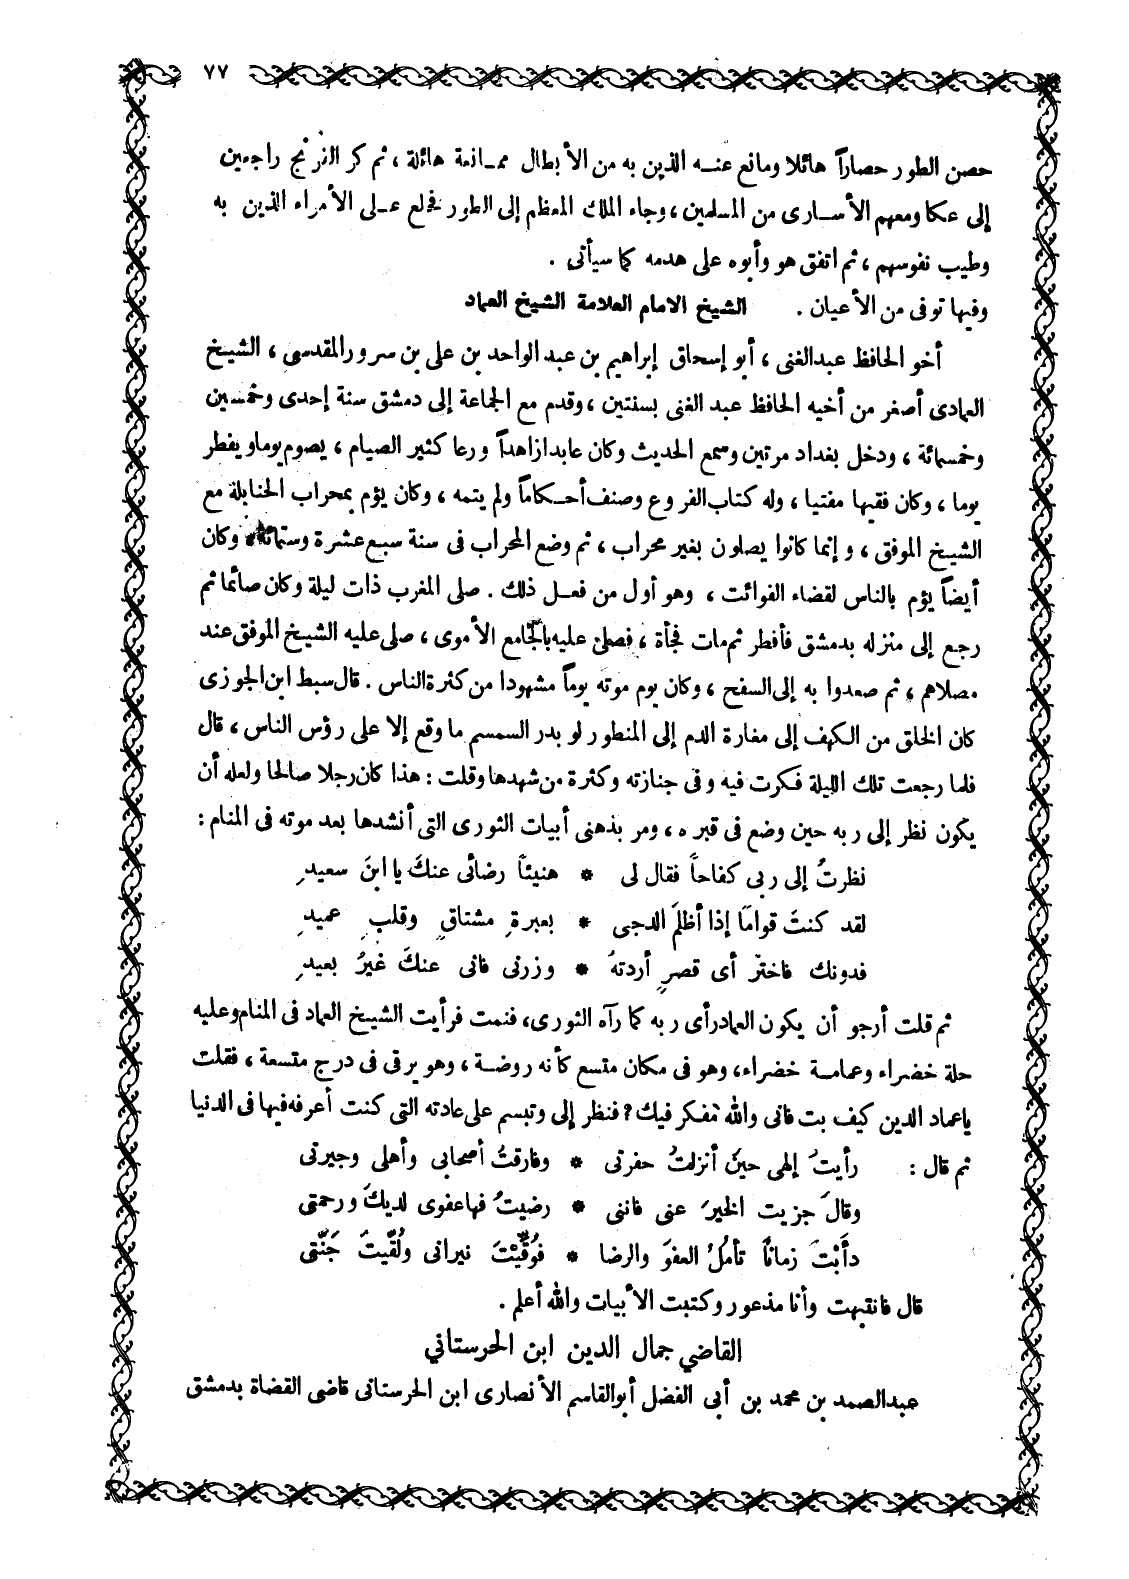 ٧٧
حصن الطور حصاراً هائلا ومانع عنه الذين به من الأبطال ممانعة هائلة ، ثم كر الفرنج راجعين
إلى عكا ومعهم الأسارى من المسلمين ، وجاء الملك المعظم إلى الطور فخلع على الأمراء الذين به
وطيب نفوسهم ، ثم اتفق هو وأبوه على هدمه كما سيأتى .
وفيها توفى من الأعيان . الشيخ الامام العلامة الشيخ العماد
أخو الحافظ عبدالغنى ، أبو إسحاق إبراهيم بن عبد الواحد بن على بن سرور المقدسى ، الشيخ
العمادى أصغر من أخيه الحافظ عبد الغنى بسنتين ، وقدم مع الجماعة إلى دمشق سنة إحدى وخمسين
وخمسمائة ، ودخل بغداد مرتين وسمع الحديث وكان عابدا زاهداً ورعا كثير الصيام ، يصوم يوما و يفطر
يوما ، وكان فقيها مفتيا ، وله كتاب الفروع وصنف أحكاماً ولم يتمه ، وكان يؤم بمحراب الحنابلة مع
الشيخ الموفق ، و إنما كانوا يصلون بغير محراب ، ثم وضع المحراب فى سنة سبع عشرة وستمائة ، وكان
أيضاً يؤم بالناس لقضاء الفوائت ، وهو أول من فعل ذلك . صلى المغرب ذات ليلة وكان صائما ثم
رجع إلى منزله بدمشق فأفطر ثم مات فجأة ، فصلى عليه بالجامع الأموى ، صلى عليه الشيخ الموفق عند
مصلاهم ، ثم صعدوا به إلى السفح ، وكان يوم موته يوماً مشهودا من كثرة الناس . قال سبط ابن الجوزى
كان الخلق من الكهف إلى مغارة الدم إلى المنطور لو بدر السمسم ما وقع إلا على رؤس الناس ، قال
فلما رجعت تلك الليلة فكرت فيه وفى جنازته وكثرة من شهدها وقلت : هذا كان رجلا صالحا ولعله أن
يكون نظر إلى ربه حين وضع فى قبره ، ومر بذهنى أبيات الثورى التى أنشدها بعد موته فى المنام :
نظرتُ إلى ربى كفاحاً فقال لى * هنيئاً رضائى عنكَ يا ابنَ سعيدِ
لقد كنتَ قواماً إذا أظلمَ الدجى * بعبرةِ مشتاقٍ وقلبِ عميدِ
فدونك فاختر أى قصرٍ أردتهُ * وزرنى فانى عنكَ غيرُ بعيدِ
ثم قلت أرجو أن يكون العماد رأى ربه كما رآه الثورى ، فنمت فرأيت الشيخ العماد فى المنام وعليه
حلة خضراء وعمامة خضراء ، وهو فى مكان متسع كأنه روضة ، وهو يرقى فى درج متسعة ، فقلت
يا عماد الدين كيف بت فانى والله مفكر فيك ؟ فنظر إلى وتبسم على عادته التى كنت أعرفه فيها فى الدنيا
ثم قال : رأيتُ إلهى حينَ أنزلتُ حفرتى * وفارقتُ أصحابى وأهلى وجيرتى
وقالَ جزيت الخيرَ عنى فاننى * رضيتُ فهاعفوى لديكَ ورحمتى
دأَبْتَ زماناً تأملُ العفوَ والرضا * فوُقِّيْتَ نيرانى ولُقِّيتَ جَنَّتى
قال فانتبهت وأنا مذعور وكتبت الأبيات والله أعلم .
القاضي جمال الدين ابن الحرستاني
عبدالصمد بن محمد بن أبى الفضل أبو القاسم الأنصارى ابن الحرستانى قاضى القضاة بدمشق